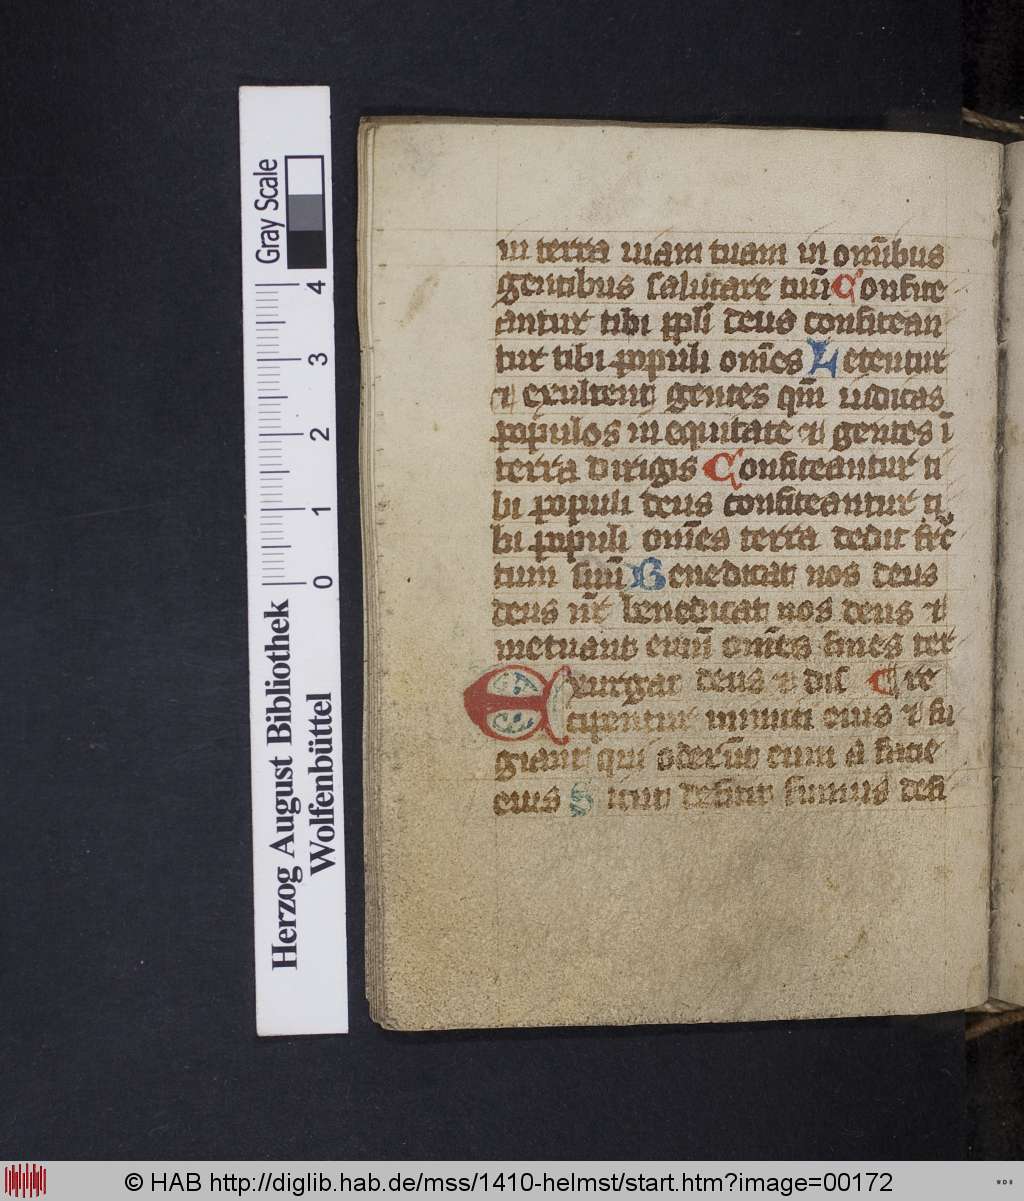 Gray Scale
4
3
2
1
0
Herzog August Bibliothek
Wolfenbüttel
in terra uiam tuam in om̅ibus
gentibus salutare tuu̅ Confite
antur tibi ppl̅i deus confitean
tur tibi populi om̅es Letentur
⁊ exultent gentes qm̅ iudicas
populos in equitate ⁊ gentes i̅
terra dirigis Confiteantur ti
bi populi deus confiteantur ti
bi populi om̅es terra dedit fruc
tum suu̅ Benedicat nos deus
deus nr̅ benedicat nos deus ⁊
metuant eum̅ om̅es fines ter
Exurgat deus ⁊ dis re
cipentur inimici eius ⁊ fu
giant qui oderu̅t eum a facie
eius Sicut deficit fumus defi
© HAB http://diglib.hab.de/mss/1410-helmst/start.htm?image=00172